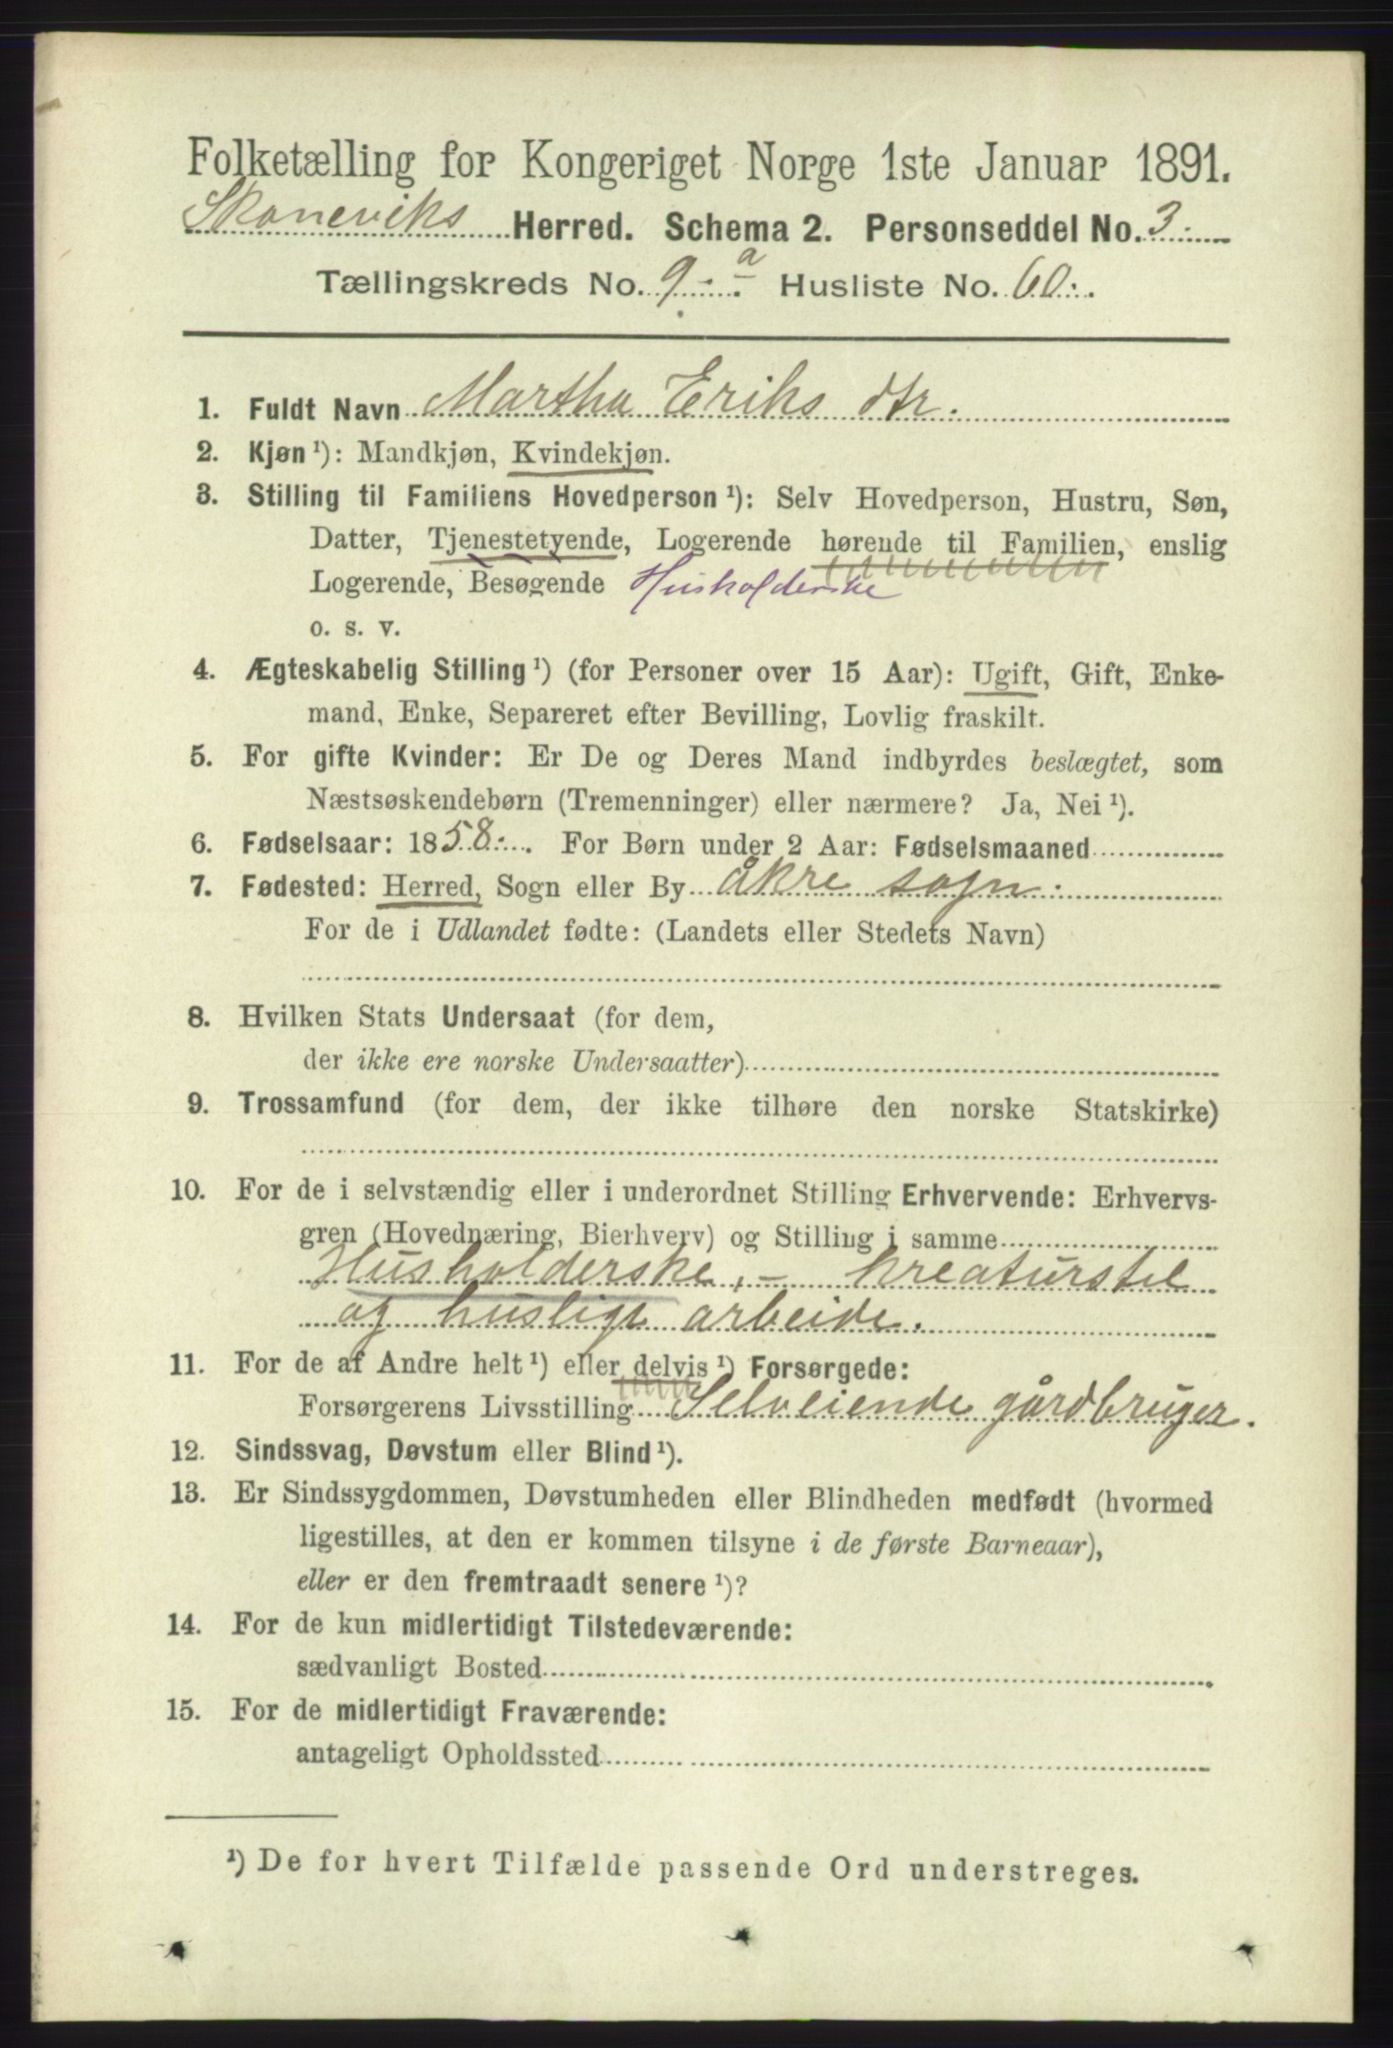 Folketælling for Kongeriget Norge 1ste Januar 1891.
Skoneviks Herred. Schema 2. Personseddel No. 3.
Tællingskreds No. 9.a Husliste No. 60.
1. Fuldt Navn Martha Eriks dtr.
2. Kjøn¹): Mandkjøn, Kvindekjøn.
3. Stilling til Familiens Hovedperson¹): Selv Hovedperson, Hustru, Søn,
Datter, Tjenestetyende, Logerende hørende til Familien, enslig
Logerende, Besøgende Husholderske
o. s. v.
4. Ægteskabelig Stilling¹) (for Personer over 15 Aar): Ugift, Gift, Enke-
mand, Enke, Separeret efter Bevilling, Lovlig fraskilt.
5. For gifte Kvinder: Er De og Deres Mand indbyrdes beslægtet, som
Næstsøskendebørn (Tremenninger) eller nærmere? Ja, Nei¹).
6. Fødselsaar: 1858. For Børn under 2 Aar: Fødselsmaaned
7. Fødested: Herred, Sogn eller By åkre sogn.
For de i Udlandet fødte: (Landets eller Stedets Navn)
8. Hvilken Stats Undersaat (for dem,
der ikke ere norske Undersaatter)
9. Trossamfund (for dem, der ikke tilhøre den norske Statskirke)
10. For de i selvstændig eller i underordnet Stilling Erhvervende: Erhvervs-
gren (Hovednæring, Bierhverv) og Stilling i samme
Husholderske, - kreaturstel
og husligt arbeide.
11. For de af Andre helt¹) eller delvis¹) Forsørgede:
Forsørgerens Livsstilling Selveiende gårdbruger.
12. Sindssvag, Døvstum eller Blind¹).
13. Er Sindssygdommen, Døvstumheden eller Blindheden medfødt (hvormed
ligestilles, at den er kommen tilsyne i de første Barneaar),
eller er den fremtraadt senere¹)?
14. For de kun midlertidigt Tilstedeværende:
sædvanligt Bosted
15. For de midlertidigt Fraværende:
antageligt Opholdssted
¹) De for hvert Tilfælde passende Ord understreges.